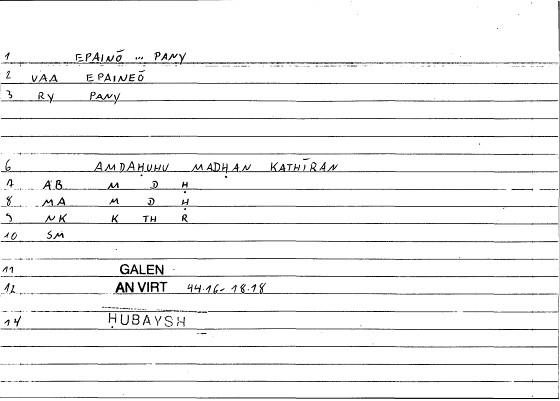 1 EPAINŌ ... PANY
2 VAA EPAINEŌ
3 RY PANY
6 AMDAḤUHU MADḤAN KATHĪRAN
7 AB M D Ḥ
8 MA M D Ḥ
9 NK K TH R
10 SM
11 GALEN
12 AN VIRT 44.16-18.18
14 ḤUBAYSH